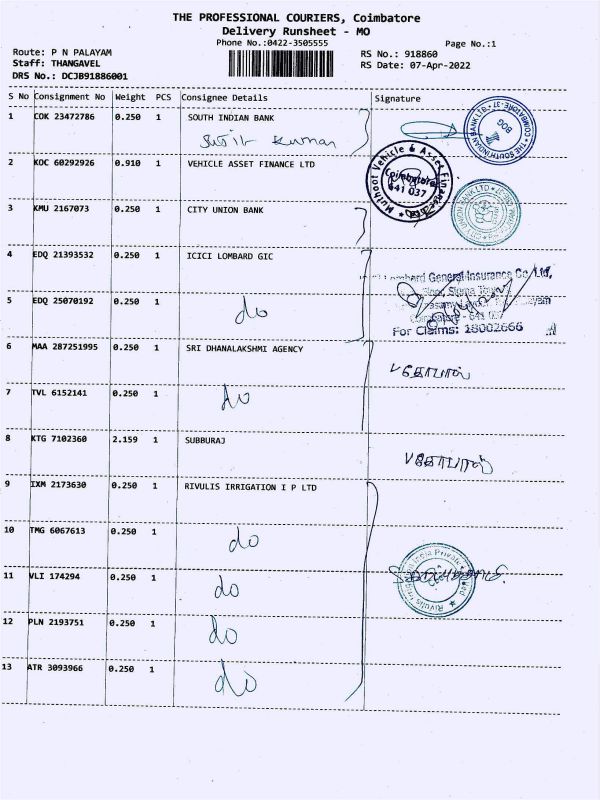 THE PROFESSIONAL COURIERS, Coimbatore
Delivery Runsheet - MO
Phone No.:0422-3505555
Page No.:1
Route: P N PALAYAM
RS No.: 918860
Staff: THANGAVEL
RS Date: 07-Apr-2022
DRS No.: DCJB91886001
S No Consignment No Weight PCS Consignee Details Signature
1 COK 23472786 0.250 1 SOUTH INDIAN BANK
Kumar
2 KOC 60292926 0.910 1 VEHICLE ASSET FINANCE LTD
Muthoot Vehicle & Asset Finance
Coimbatore
641 037
3 KMU 2167073 0.250 1 CITY UNION BANK
4 EDQ 21393532 0.250 1 ICICI LOMBARD GIC
Lombard General Insurance Co Ltd,
5 EDQ 25070192 0.250 1 do
For Claims: 18002666
6 MAA 287251995 0.250 1 SRI DHANALAKSHMI AGENCY
7 TVL 6152141 0.250 1 do
8 KTG 7102360 2.159 1 SUBBURAJ
9 IXM 2173630 0.250 1 RIVULIS IRRIGATION I P LTD
10 TMG 6067613 0.250 1 do
11 VLI 174294 0.250 1 do
12 PLN 2193751 0.250 1 do
13 ATR 3093966 0.250 1 do